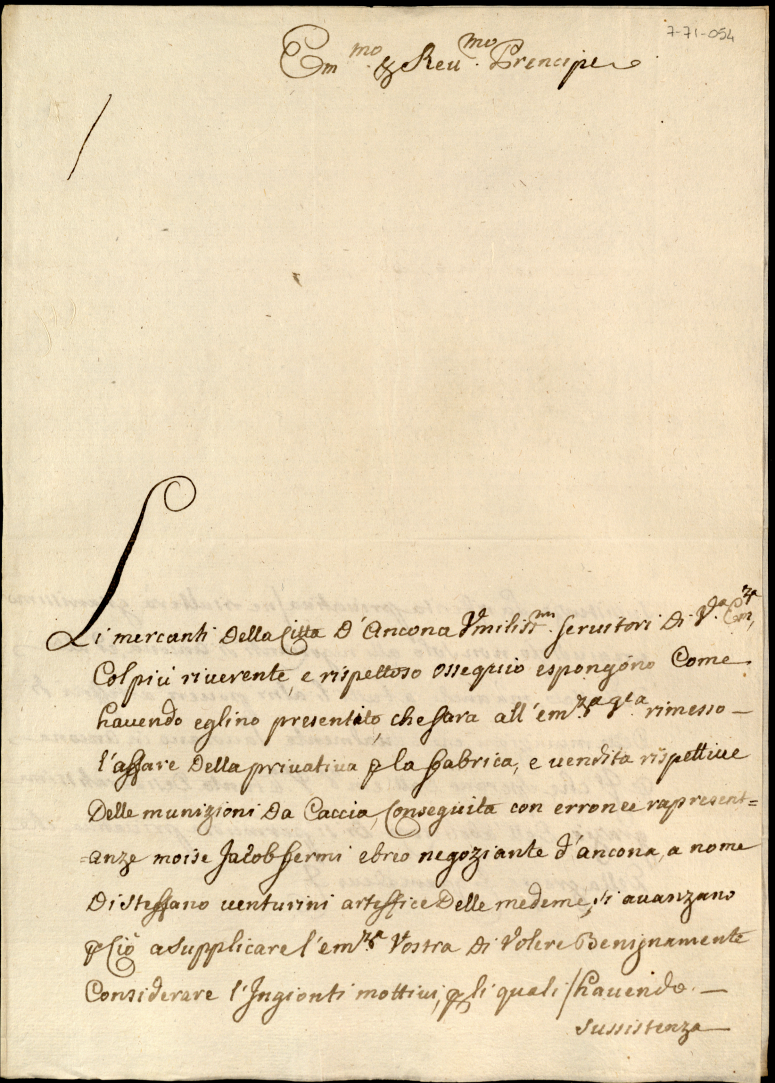 7-71-054
Em.mo & Reu.mo Principe
Li mercanti della Citta d'Ancona Vmiliss.mi seruitori di V.a Em.za,
Col piú riuerente, e rispettoso ossequio espongono Come
hauendo eglino presentito, che sara all'em.za V.ra rimesso
l'affare della priuatiua p la fabrica, e uendita rispettiue
delle munizioni da Caccia, Conseguita con erronee rapresent=
=anze moise Jacob fermi ebreo negoziante d'ancona, a nome
di steffano uenturini arteffice delle medeme, si auanzano
p Ciò a supplicare l'em.za Vostra di Volere Benignamente
Considerare l'Ingionti mottiui, p li quali /hauendo
sussistenza